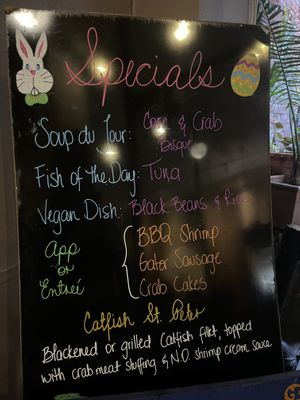 Specials
Soup du Jour: Corn & Crab
Bisque
Fish of the Day: Tuna
Vegan Dish: Black Beans & Rice
App
or
Entreé
BBQ Shrimp
Gater Sausage
Crab Cakes
Catfish St. Peter
Blackened or grilled Catfish filet, topped
with crab meat stuffing & N.O. shrimp cream sauce